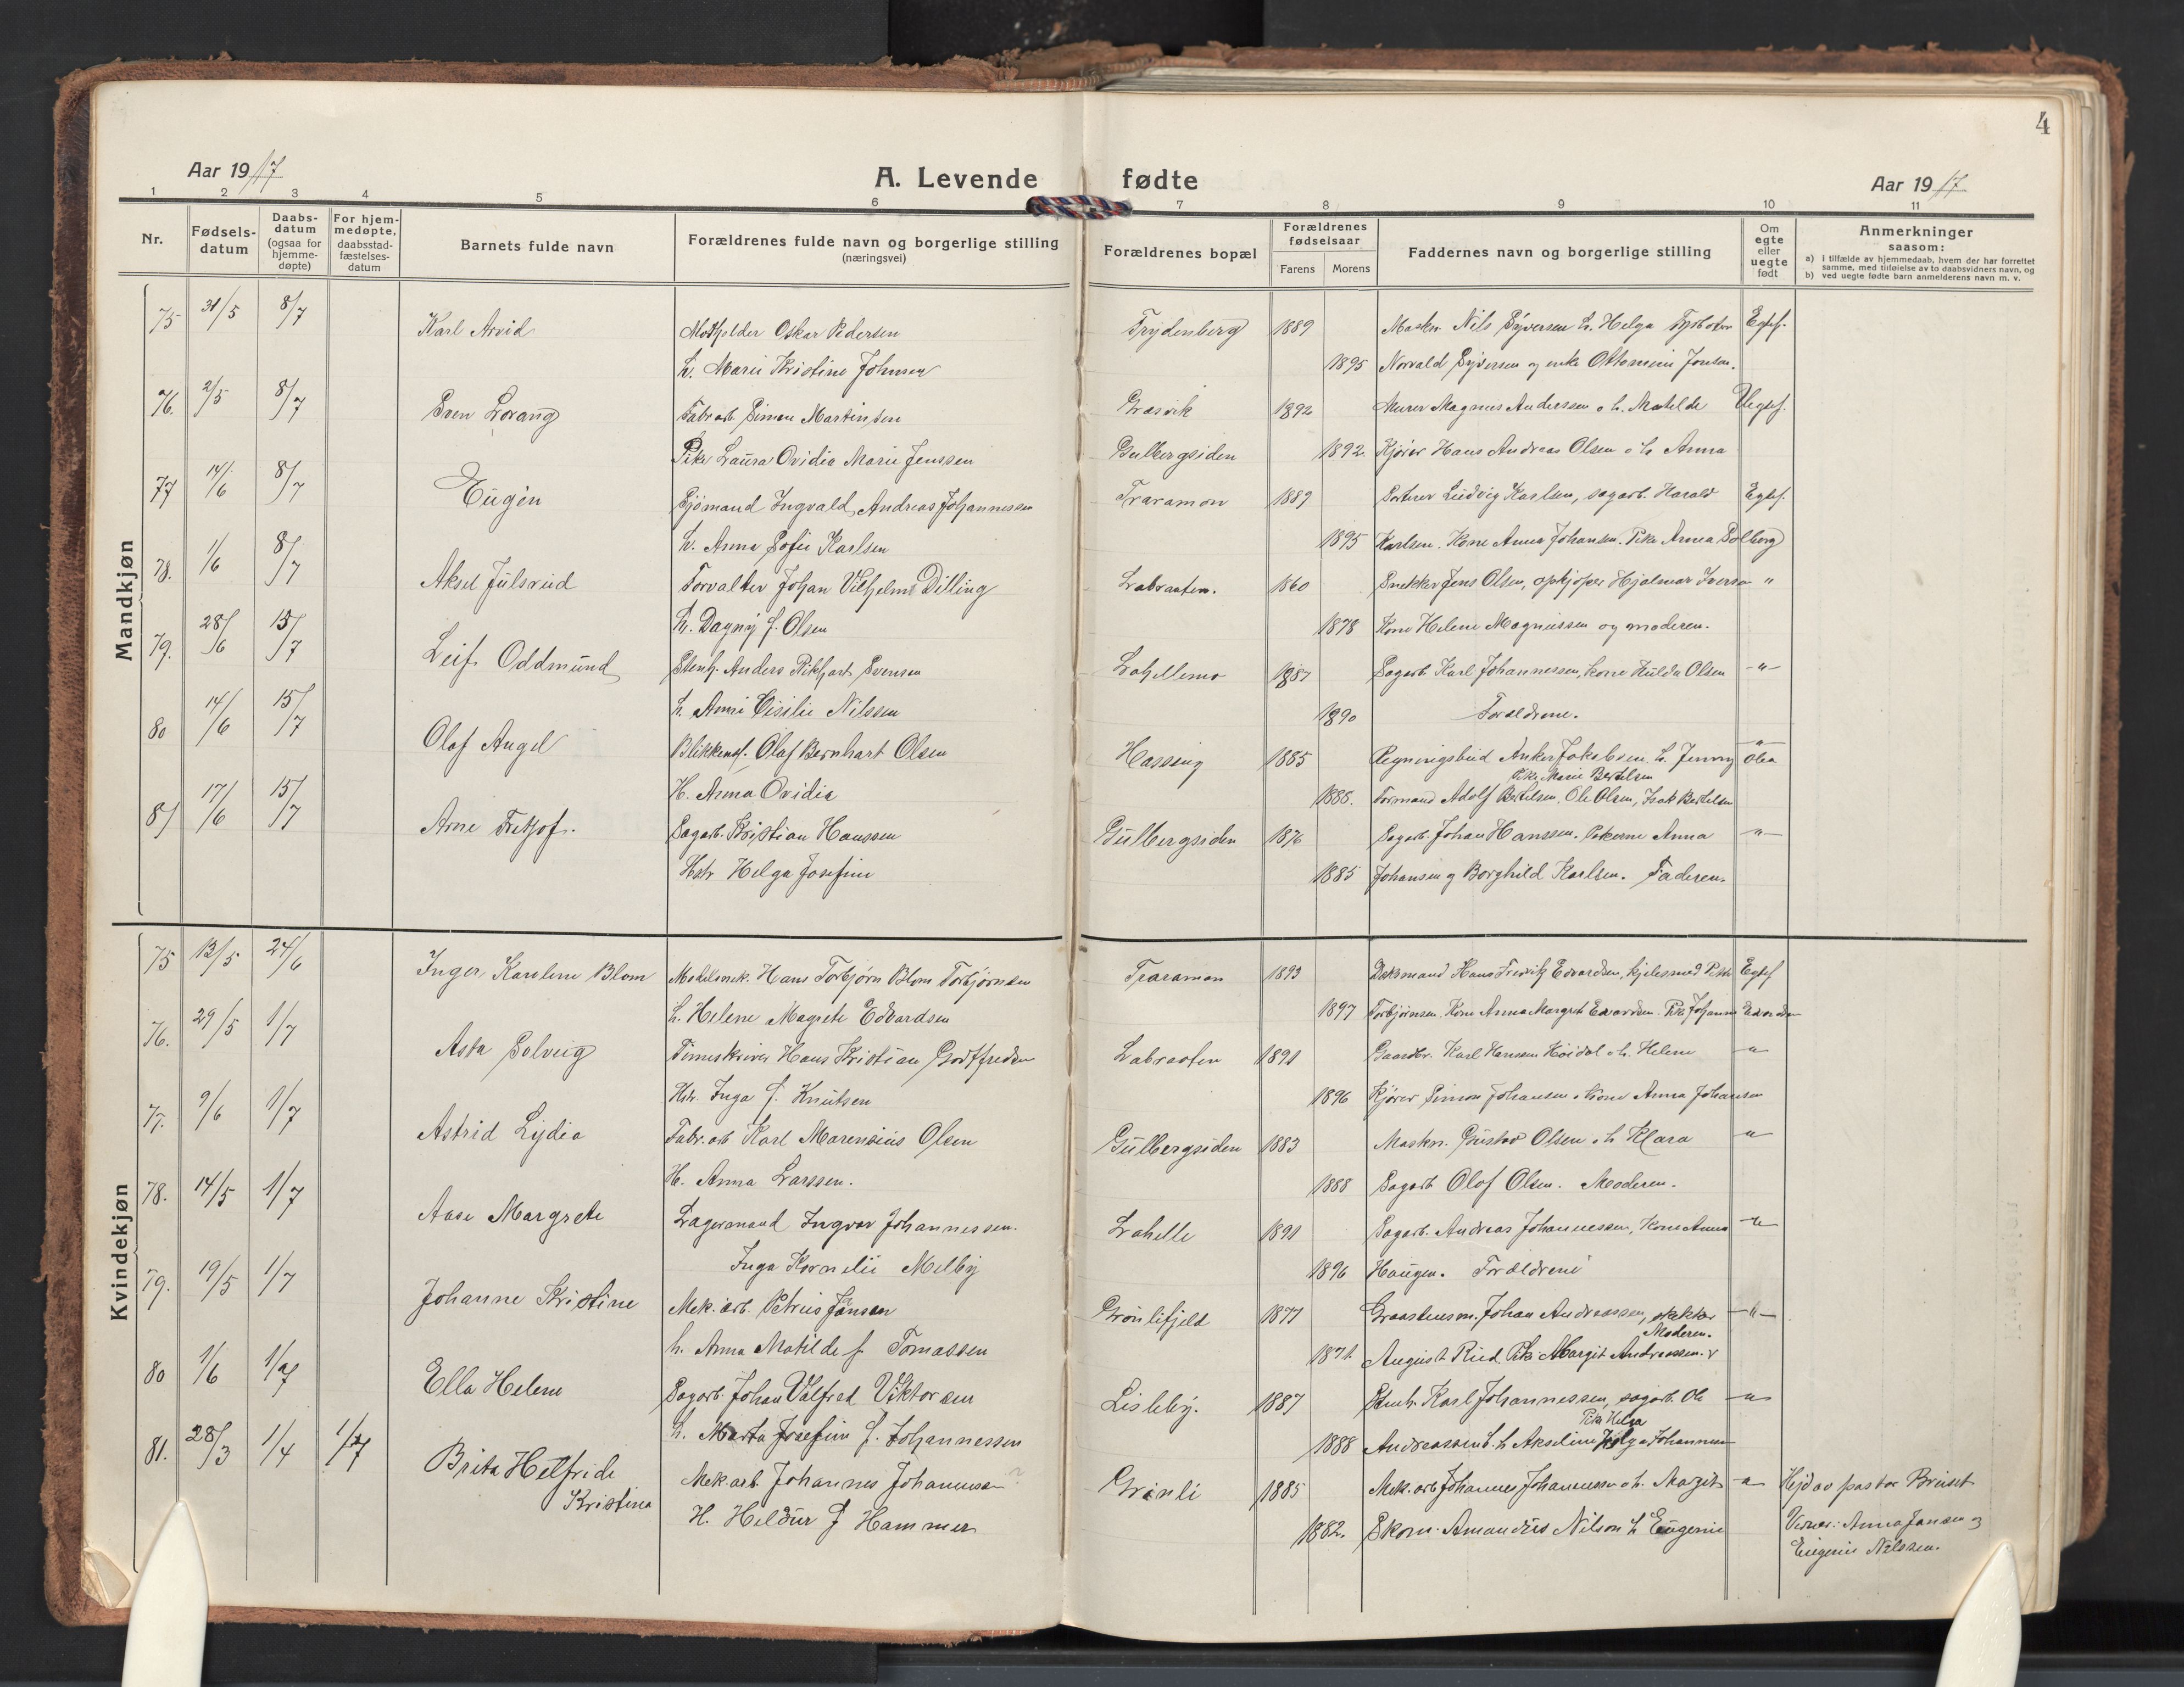 4
Aar 1917
A. Levende fødte
Aar 1917
1 2 3 4 5 6 7 8 9 10 11
Nr.
Fødsels-datum
Daabs-datum (ogsaa for hjemme-døpte)
For hjem-medøpte, daabsstad-fæstelses-datum
Barnets fulde navn
Forældrenes fulde navn og borgerlige stilling (næringsvei)
Forældrenes bopæl
Forældrenes fødselsaar
Farens Morens
Faddernes navn og borgerlige stilling
Om egte eller uegte født
Anmerkninger saasom:
a) i tilfælde av hjemmedaab, hvem der har forrettet samme, med tilføielse av to daabsvidners navn, og
b) ved uegte fødte barn anmelderens navn m. v.
Mandkjøn
75 31/5 8/7 Karl Arvid Oskar Pedersen Trydenberg 1889 Maskn. Nils Syversen h. Helga Egtef.
h. Marie Kristine Johnsen 1895 Norvald Syversen og enke Ottomine Jonsen.
76. 2/5 8/7 Sven Lorang Fabr.arb. Simen Martinsen Græsvik 1892 Murer Magnus Anderssen o h. Matilde Uegtef.
Pike Laura Ovidia Marie Jenssen Gulbergsiden 1892. Kjører Hans Andreas Olsen o h Anna
77 14/6 8/7 Eugen Sjømand Ingvald Andreas Johannessen Traramon 1889 Sorterer Ludvig Karlsen, sagarb. Harald Egtef.
h. Anna Sofie Karlsen 1895 Karlsen. Kone Anna Johansen. Pike Anna Solborg
78. 1/6 8/7 Aksel Julsrud Forvalter Johan Vilhelm Dilling Labraaten. 1860 Snekker Jens Olsen, opkjøper Hjalmar Iversen "
h. Dagny f. Olsen 1878 Kone Helene Magnussen og moderen.
79. 28/6 15/7 Leif Oddmund Stenh. Anders Rikhart Svensen Lahellemo 1887 Sagarb Karl Johannessen, kone Hulda Olsen -"-
h. Anne Cisilie Nilssen 1890 Forældrene.
80 14/6 15/7 Olaf Angel Blikkensl. Olaf Bernhart Olsen Hassing 1885 Regningsbud Anker Jakobsen. h. Jenny Olea -"-
Pike Marie Bertelsen
H. Anna Ovidia 1888. Formand Adolf Bertelsen. Ole Olsen, Isak Bertelsen
81 17/6 15/7 Arne Fretjof. Sagarb. Kristian Hanssen Gulbergsiden 1876 Sagarb. Johan Hanssen. Pikerne Anna -"-
Hstr Helga Josefine 1885 Johansen og Borghild Karlsen. Faderen.
Kvindekjøn
75 13/5 24/6 Inger Karolene Blom Hans Torbjørn Blom Torbjørnsen Traramon 1893 Dæksmand Hans Fredrik Edvardsen, kjelesmed Egtef
h. Helene Magrete Edvardsen 1897 Torbjørnsen. Kone Anna Margret Edvardsen. Pike Johanne Edvardsen
76. 29/5 1/7 Asta Solveig Timeskriver Hans Kristian Godtfredsen Labraaten 1891 Gaardbr. Karl Hanssen Høidal o h. Helene -"-
Hstr. Inga f. Knutsen 1896 Kjører Simon Johansen o kone Anna Johansen
77. 9/6 1/7 Astrid Lydia Fabr.arb Karl Marensius Olsen Gulbergsiden 1883 Maskn. Gustav Olsen o h Klara -"-
H. Anna Larssen. 1888 Sagarb Olof Olsen. Moderen.
78. 14/5 1/7 Aase Margrete Lagermand Ingvar Johannessen. Lahelle 1891 Sagarb. Andreas Johannessen, Kone Anna -"-
Inga Kornelie Melby 1896 Haugen. Forældrene
79. 19/5 1/7 Johanne Kristine Mek. arb. Petrus Jansen Grønlifjeld 1877 Graastensm. Johan Andreassen, -"-
Moderen.
h. Anna Matilde f. Tomassen 1871 August Rud. Pike Margit Andreassen.
80 1/6 1/7 Ella Helene Sagarb. Johan Valfred Viktorsen Lisleby. 1887 Stenh. Karl Johannessen, sagarb. Ole -"-
Pike Helga
h. Marta Josefine f. Johannessen 1888 Andreassen h. Akseline Johannessen
81. 28/3 1/4 1/7 Brita Helfride Kristina Mek.arb. Johannes Johannessen Grønli 1885 Mek. arb Johannes Johannessen o h. Magit -"- Hjd av pastor Bruset
H. Heldur f Hammer 1882. Skom. Amandus Nilson h Eugenie Vidner: Anna Jansen og
Eugenie Nilssen.